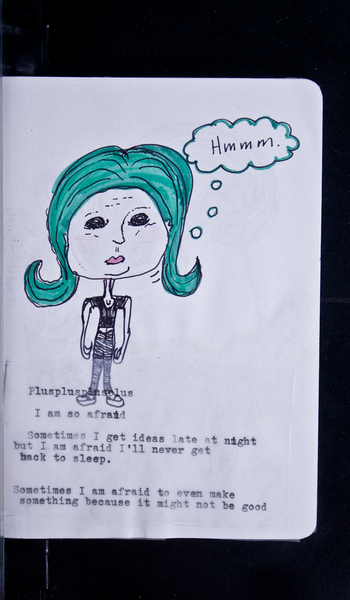 Hmmm.
I am so afraid
Sometimes I get ideas late at night
but I am afraid I'll never get
back to sleep.
Sometimes I am afraid to even make
something because it might not be good